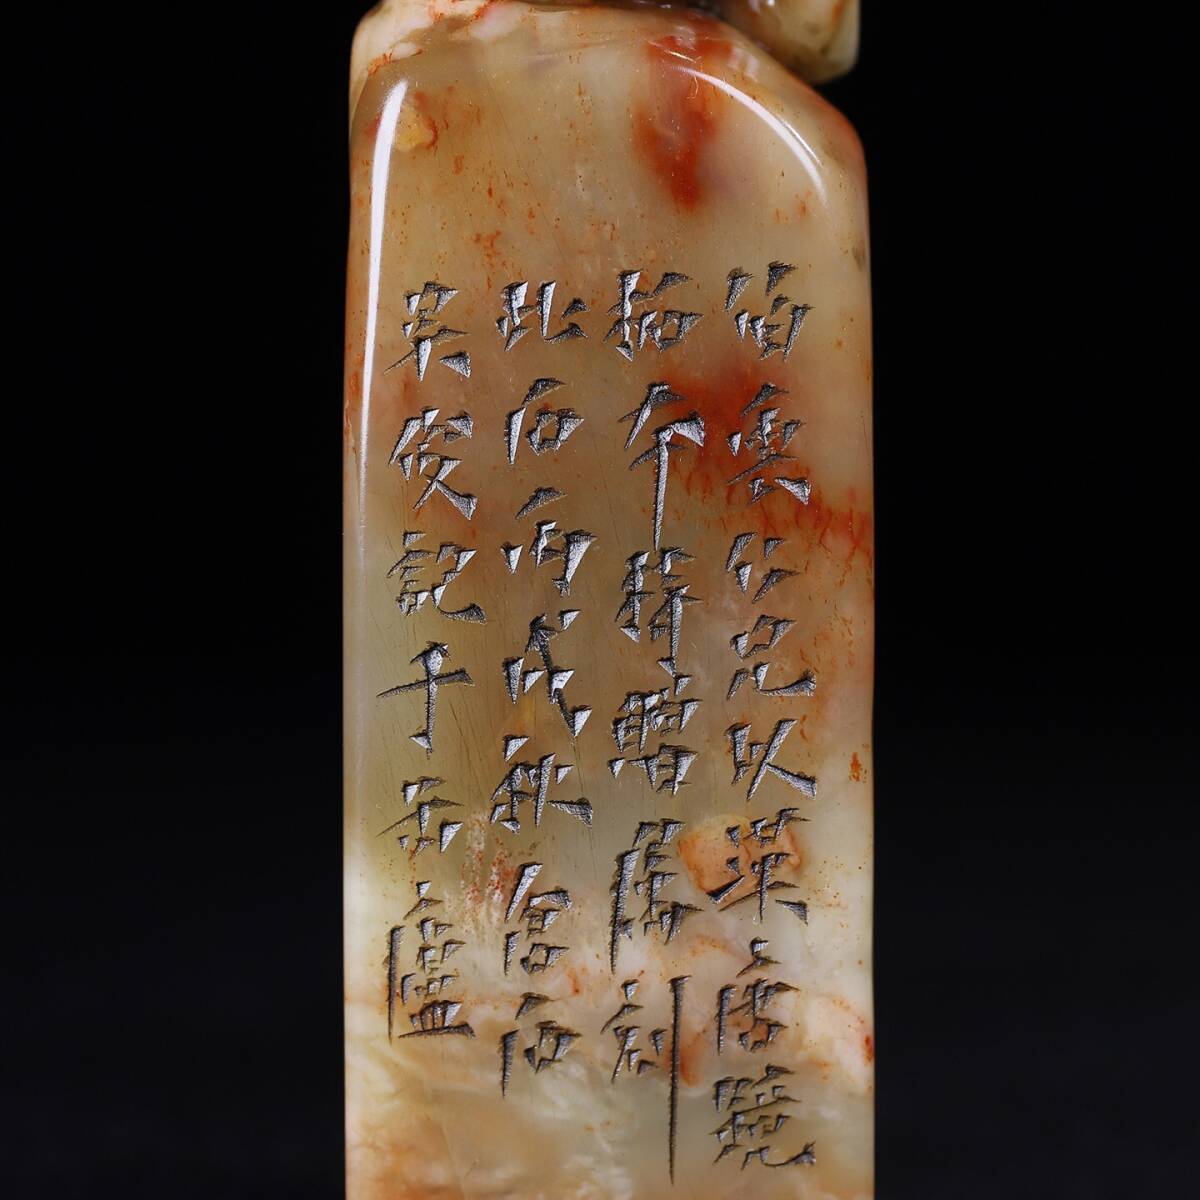 笛雲仁兄以漢唐鏡
拓本持贈屬刻
此石丙戌秋倉石
吳俊記于缶廬